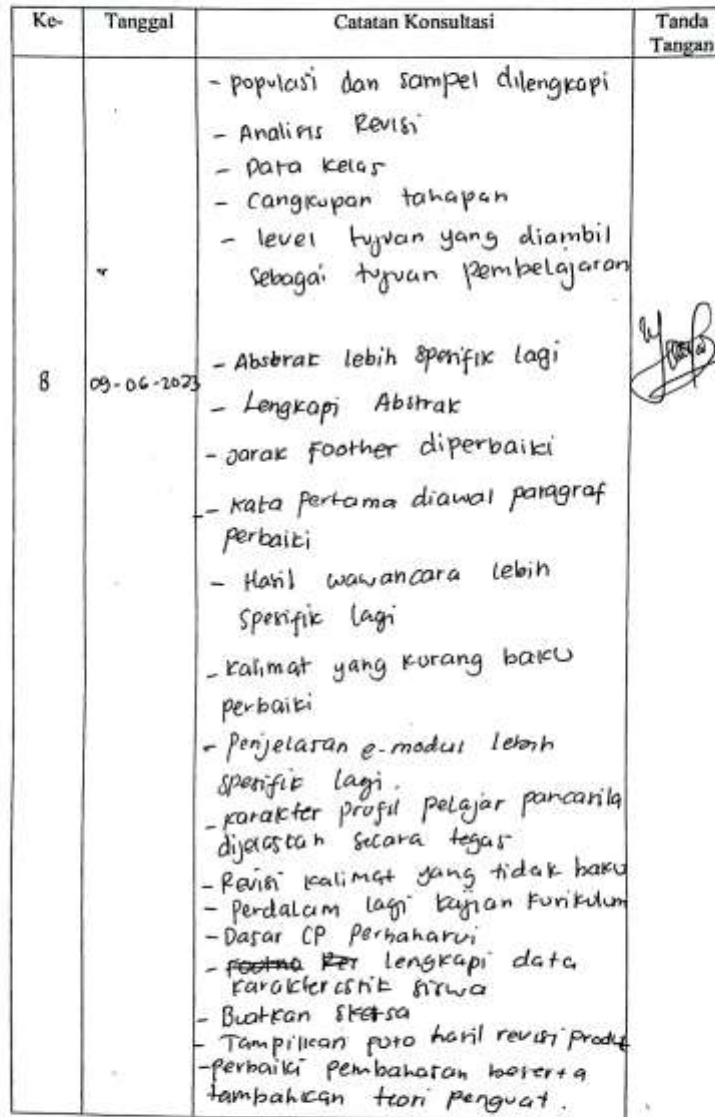 Ke- Tanggal Catatan Konsultasi Tanda Tangan
- populasi dan sampel dilengkapi
- Analisis Revisi
- Data kelas
- Cangkupan tahapan
- level tujuan yang diambil
sebagai tujuan pembelajaran
8 09-06-2023
- Abstrak lebih spesifik lagi
- Lengkapi Abstrak
- Jarak Foother diperbaiki
- kata pertama diawal paragraf
perbaiki
- Hasil wawancara lebih
spesifik lagi
- kalimat yang kurang baku
perbaiki
- Penjelasan e-modul lebih
spesifik lagi.
- karakter profil pelajar pancasila
dijelaskan secara tegas
- Revisi kalimat yang tidak baku
- Perdalam lagi kajian kurikulum
- Dasar CP Perbaharui
- lengkapi data
karakteristik siswa
- Buatkan sketsa
- Tampilkan foto hasil revisi produk
- perbaiki pembahasan beserta
tambahkan teori penguat.